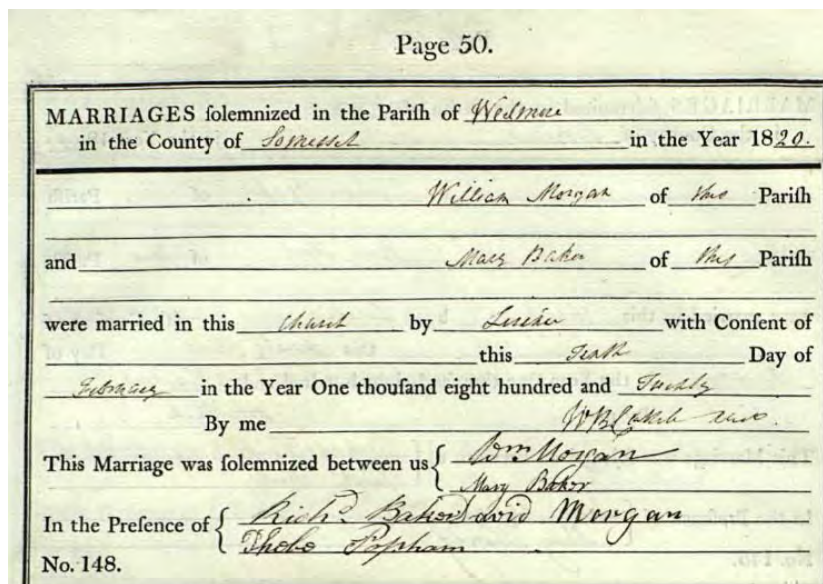 Page 50.
MARRIAGES ſolemnized in the Pariſh of Wedmore
in the County of Somerset in the Year 1820.
William Morgan of this Pariſh
and Mary Baker of this Pariſh
were married in this Church by Licence with Conſent of
this Tenth Day of
February in the Year One thouſand eight hundred and Twenty
By me
This Marriage was ſolemnized between us { Wm Morgan
Mary Baker
In the Preſence of { Richd. Baker David Morgan
Phebe Popham
No. 148.